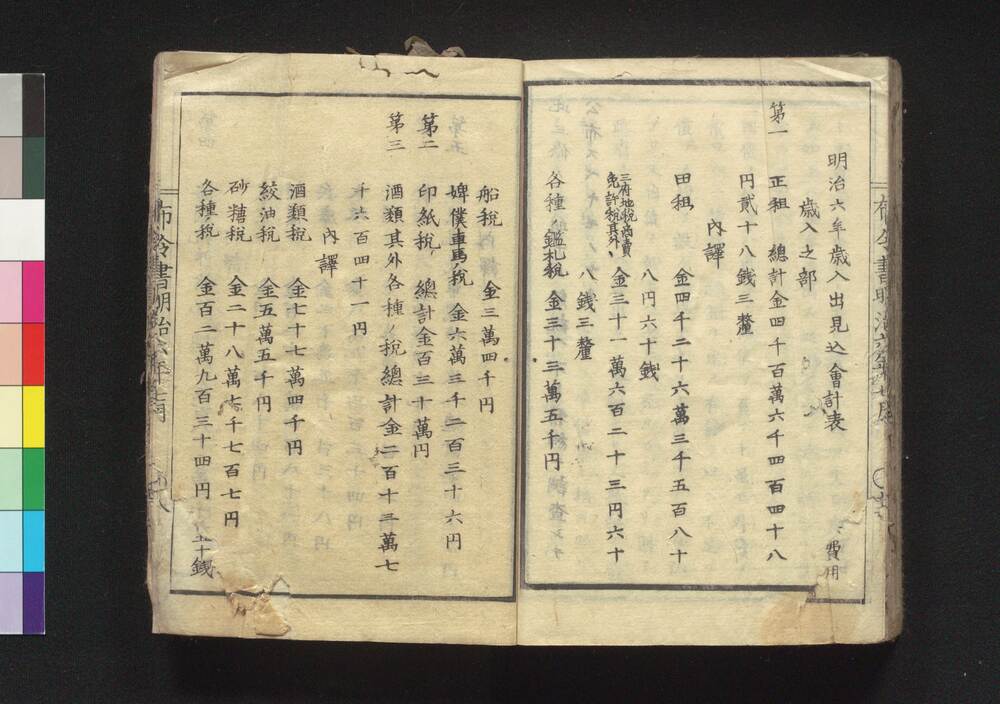 明治六年歳入出見込會計表
歳入之部
第一 正租 總計金四千百萬六千四百四十八
円貳十八銭三釐
內譯
田租 金四千二十六萬三千五百八十
八円六十銭
三府地税商賣
免許税其外 金三十一萬六百二十三円六十
八銭三釐
各種ノ鑑札税 金三十三萬五千円
費用
船税 金三萬四千円
婢僕車馬ノ税 金六萬三千二百三十六円
第二 印紙税 總計金百三十萬円
第三 酒類其外各種ノ税總計金二百十三萬七
千六百四十一円
內譯
酒類税 金七十七萬四千円
絞油税 金五萬五千円
砂糖税 金二十八萬七千七百七円
各種税 金百二萬九百三十四円
布令書明治六年七月